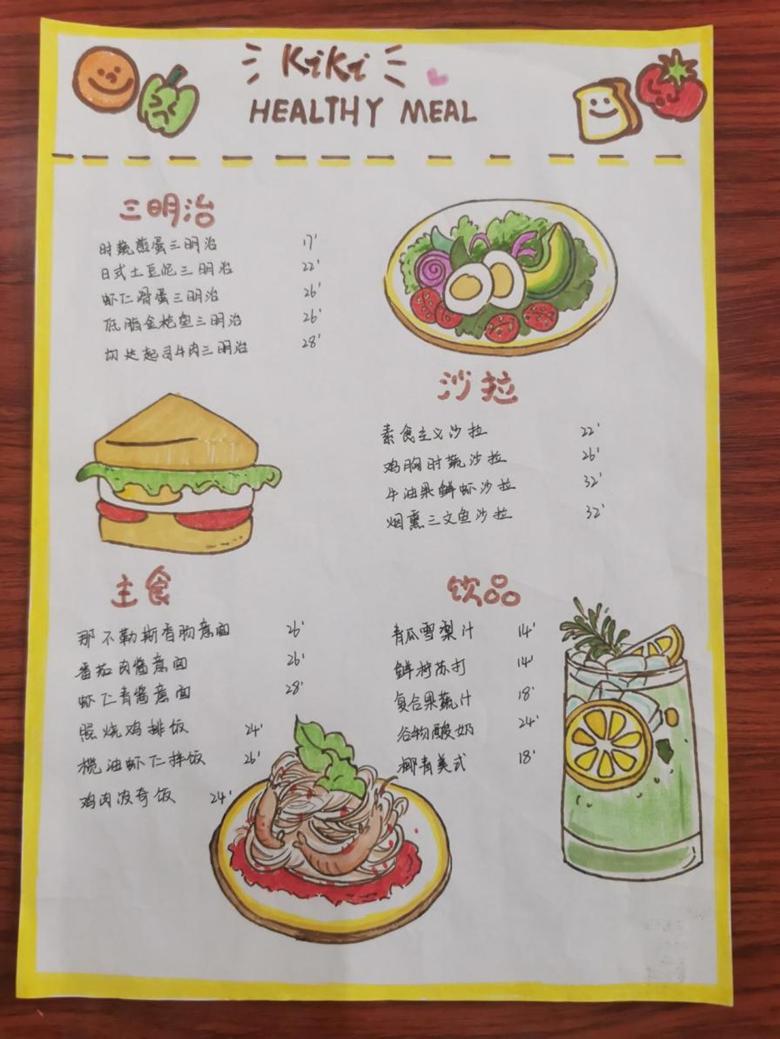 KiKi
HEALTHY MEAL
三明治
时蔬煎蛋三明治 17'
日式土豆泥三明治 22'
虾仁滑蛋三明治 26'
低脂金枪鱼三明治 26'
切达起司牛肉三明治 28'
沙拉
素食主义沙拉 22'
鸡胸时蔬沙拉 26'
牛油果鲜虾沙拉 32'
烟熏三文鱼沙拉 32'
主食
那不勒斯香肠意面 26'
番茄肉酱意面 26'
虾仁青酱意面 28'
照烧鸡排饭 24'
榄油虾仁拌饭 26'
鸡肉波奇饭 24'
饮品
青瓜雪梨汁 14'
鲜柠苏打 14'
复合果蔬汁 18'
谷物酸奶 24'
椰青美式 18'